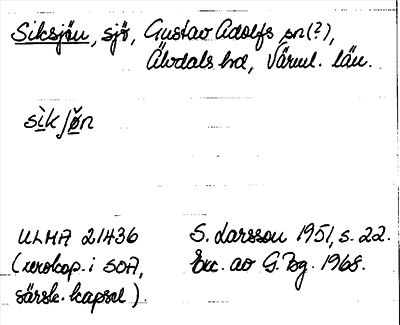 Siksjön, sjö, Gustav Adolfs sn(?),
Älvdals hd, Värml. län.
sìkʃø̌n
ULMA 21436
(xerokop. i SOA,
särsk. kapsel).
S. Larsson 1951, s. 22.
Exc. av G. Bg. 1968.